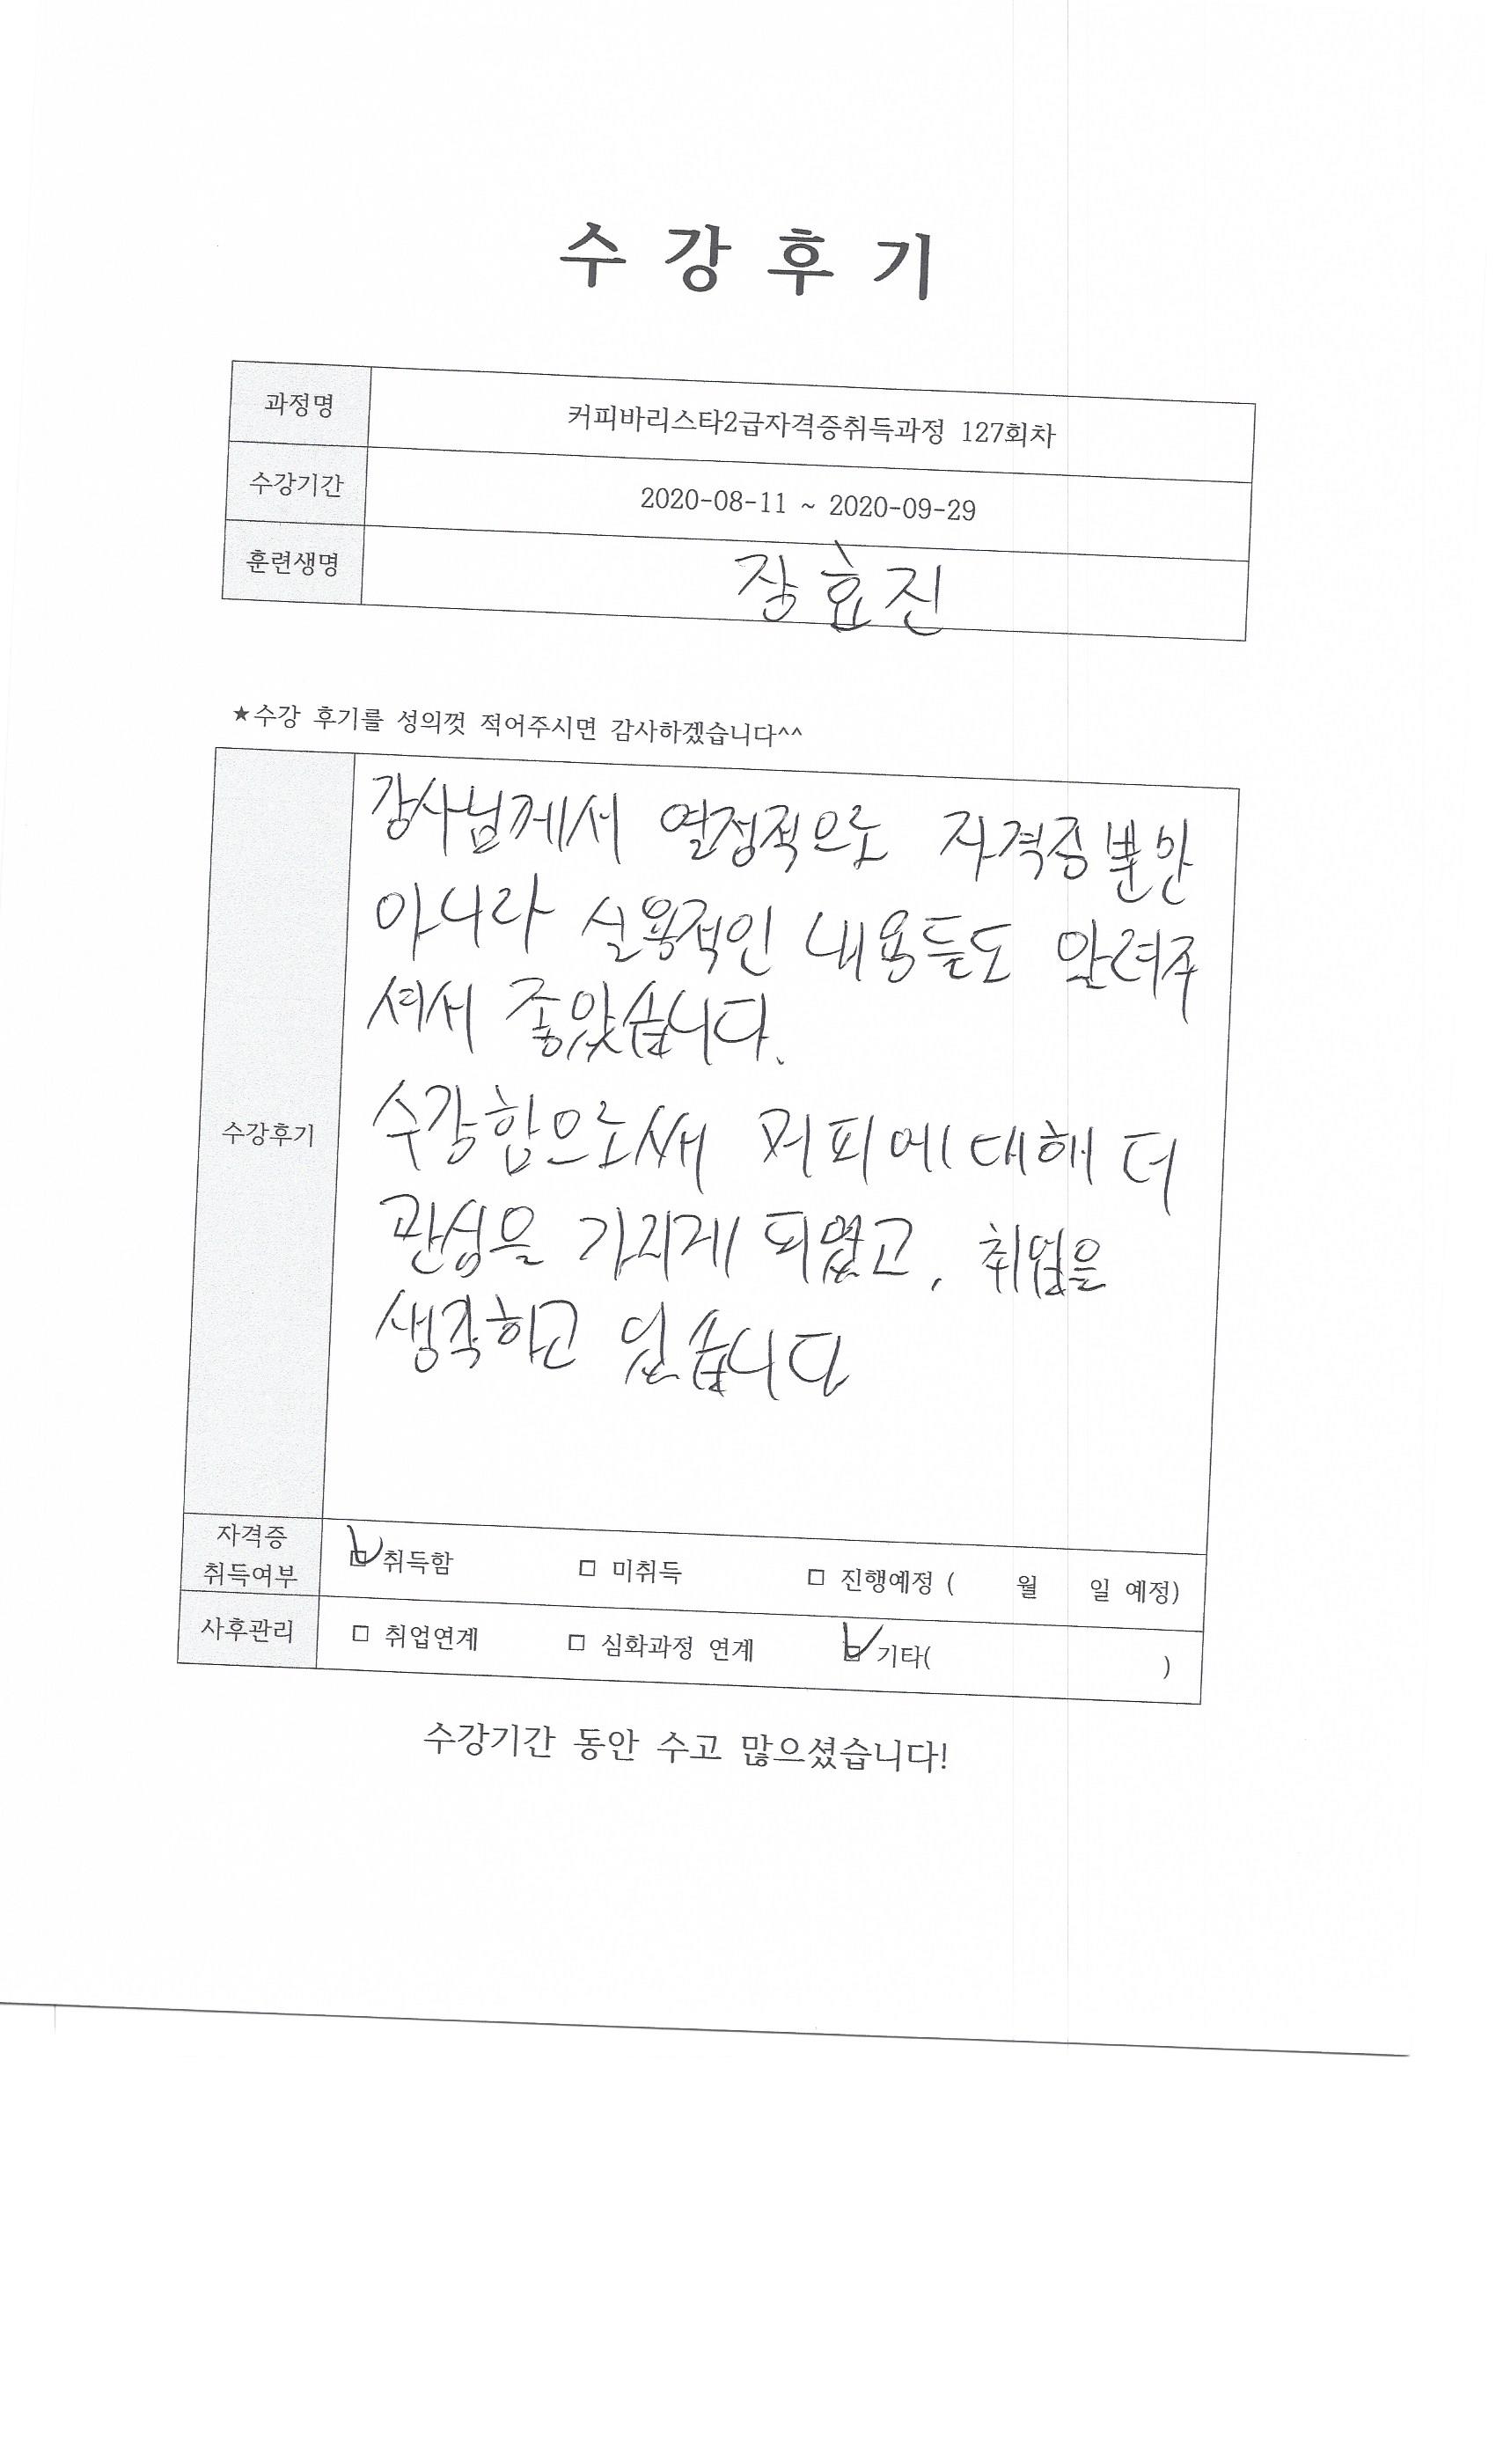 수 강 후 기
과정명 커피바리스타2급자격증취득과정 127회차
수강기간 2020-08-11 ~ 2020-09-29
훈련생명 장효진
★수강 후기를 성의껏 적어주시면 감사하겠습니다^^
강사님께서 열정적으로 자격증뿐만
아니라 실용적인 내용들도 알려주
셔서 좋았습니다.
수강함으로써 커피에 대해 더
수강후기
관심을 가지게 되었고, 취업을
생각하고 있습니다
자격증
취득여부 □ 취득함 □ 미취득 □ 진행예정 ( 월 일 예정)
사후관리 □ 취업연계 □ 심화과정 연계 □ 기타( )
수강기간 동안 수고 많으셨습니다!